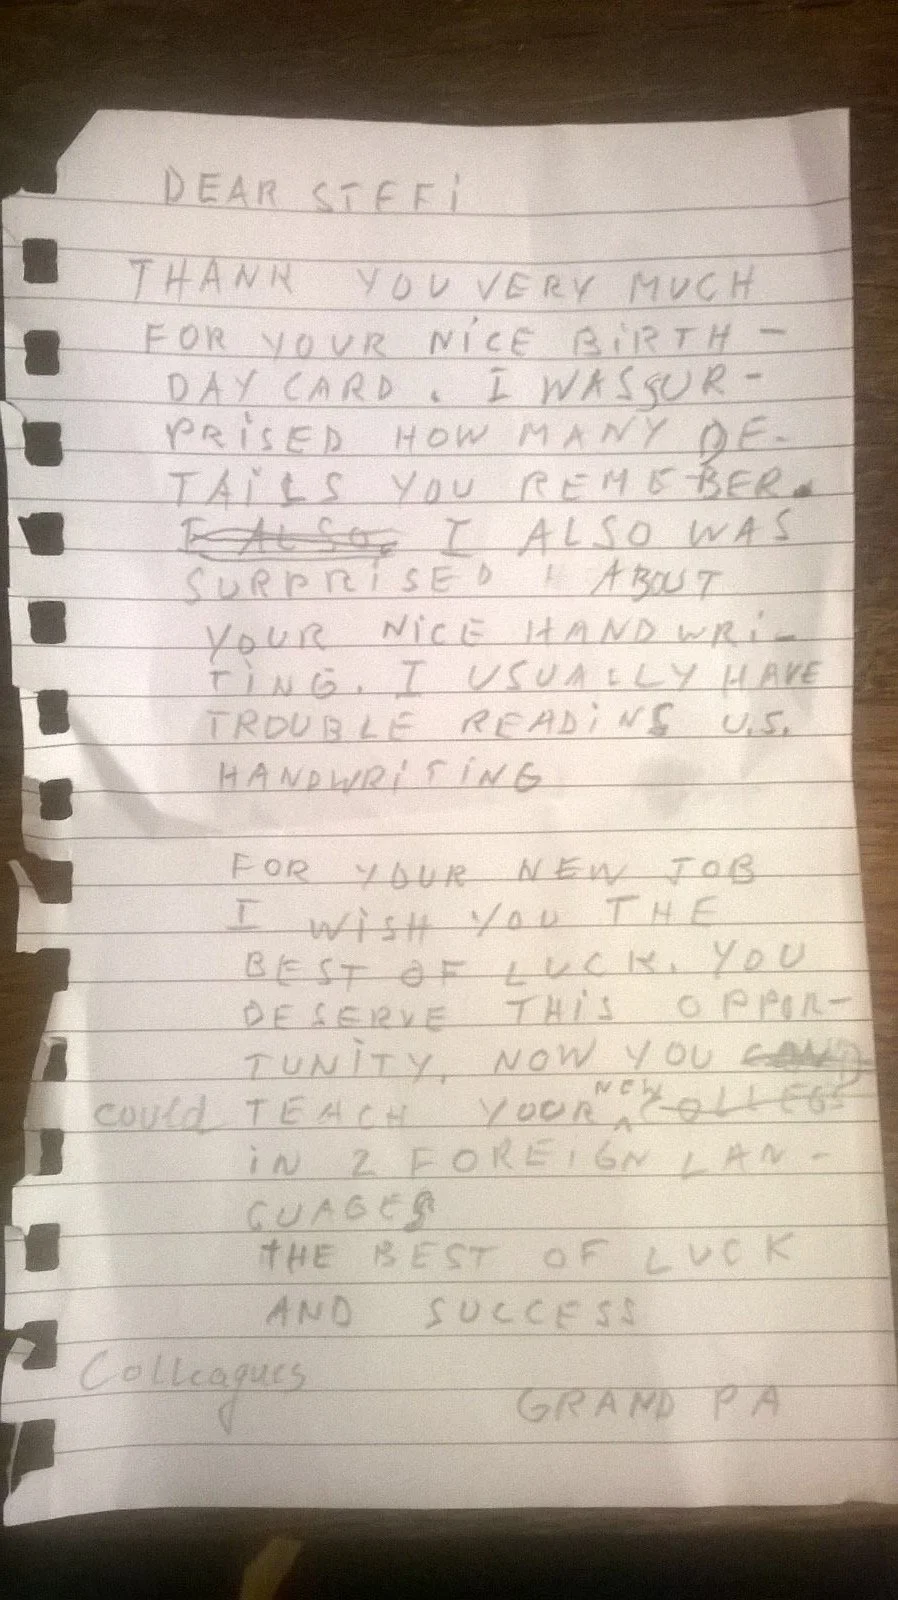 DEAR STEFi
THANK YOU VERY MUCH
FOR YOUR NiCE BiRTH-
DAY CARD. I WAS SUR-
PRiSED HOW MANY DE-
TAiLS YOU REMEBER.
I ALSO I ALSO WAS
SURPRiSED ABOUT
YOUR NiCE HANDWRi-
TiNG. I USUALLY HAVE
TROUBLE READiNG U.S.
HANDWRiTiNG
FOR YOUR NEW JOB
I WiSH YOU THE
BEST OF LUCK. YOU
DESERVE THiS OPPOR-
TUNiTY. NOW YOU
could TEACH YOUR NEW COLLEGS
iN 2 FOREiGN LAN-
GUAGES
tHE BEST OF LUCK
AND SUCCESS
Colleagues
GRAND PA